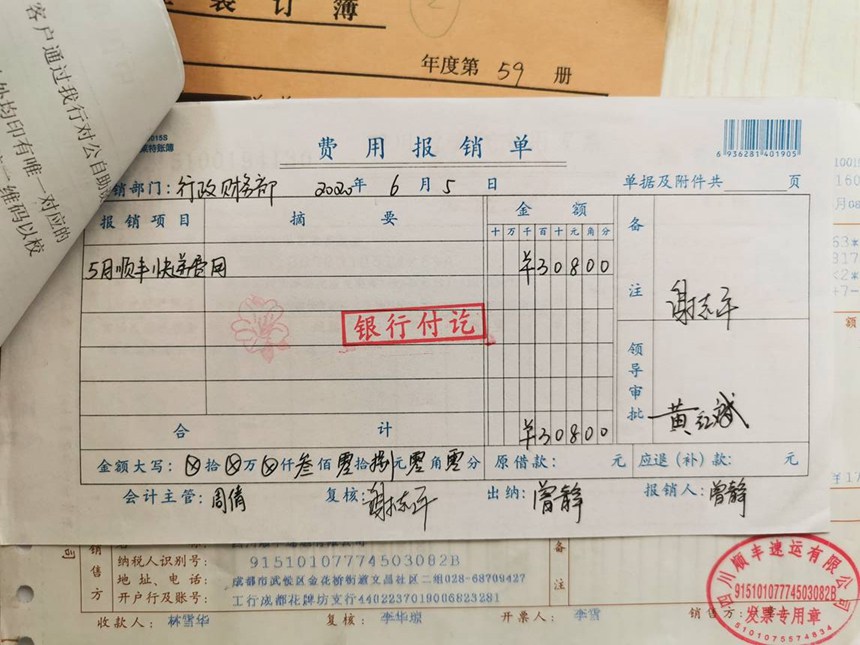 装订簿
年度第 59 册
客户通过我行对公自助
均印有唯一对应的
二维码以校
费用报销单
6 936281 401905
销部门：行政财务部 2020年 6月 5日 单据及附件共 页
报销项目 摘要 金额 备注
十万千百十元角分
5月顺丰快递费用 ¥30800
谢志平
银行付讫
领导审批
黄红斌
合计 ¥30800
金额大写：⊗拾⊗万⊗仟叁佰零拾捌元零角零分 原借款： 元 应退（补）款： 元
会计主管：周倩 复核：谢志平 出纳：曾静 报销人：曾静
销售方
纳税人识别号：91510107774503082B
地址、电话：成都市武侯区金花桥街道文昌社区二组028-68709427
开户行及账号：工行成都花牌坊支行4402237019006823281
备注
收款人：林雪华 复核：李华琼 开票人：李雪 销售方：
四川顺丰速运有限公司
91510107774503082B
发票专用章
5101075574834